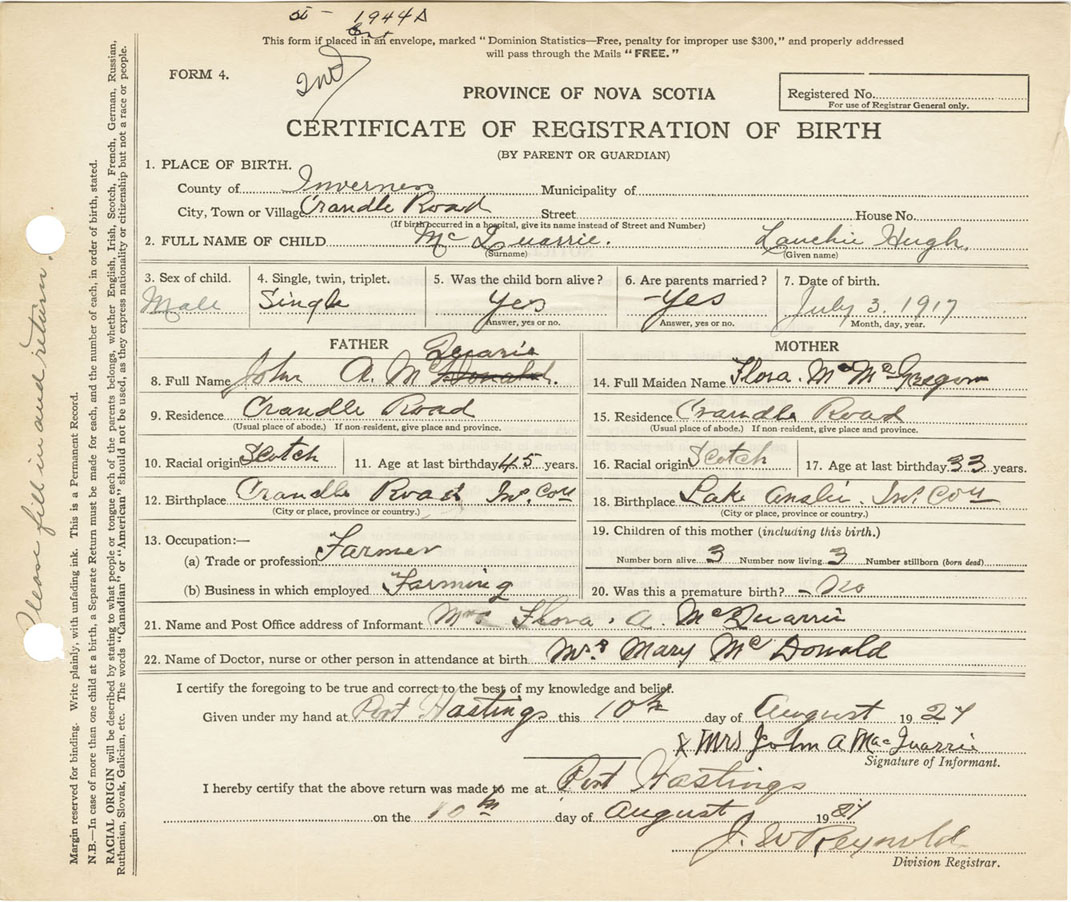 1944A
This form if placed in an envelope, marked "Dominion Statistics—Free, penalty for improper use $300," and properly addressed
will pass through the Mails "FREE."
FORM 4.
PROVINCE OF NOVA SCOTIA
Registered No.
For use of Registrar General only.
CERTIFICATE OF REGISTRATION OF BIRTH
(BY PARENT OR GUARDIAN)
1. PLACE OF BIRTH.
County of Inverness Municipality of
City, Town or Village Crandle Road Street House No.
(If birth occurred in a hospital, give its name instead of Street and Number)
2. FULL NAME OF CHILD McQuarrie. Lauchie Hugh.
(Surname) (Given name)
3. Sex of child. 4. Single, twin, triplet. 5. Was the child born alive? 6. Are parents married? 7. Date of birth.
Male Single Yes -Yes July 3, 1917
Answer, yes or no. Answer, yes or no. Month, day, year.
FATHER
Quarie
8. Full Name John A. McDonald.
9. Residence Crandle Road
(Usual place of abode.) If non-resident, give place and province.
10. Racial origin Scotch 11. Age at last birthday 45 years.
12. Birthplace Crandle Road Inv. Cou
(City or place, province or country.)
13. Occupation:—
(a) Trade or profession Farmer
(b) Business in which employed Farming
MOTHER
14. Full Maiden Name Flora. Mc McGregor
15. Residence Crandle Road
(Usual place of abode.) If non-resident, give place and province.
16. Racial origin Scotch 17. Age at last birthday 33 years.
18. Birthplace Lake Anslie. Inv. Cou
(City or place, province or country.)
19. Children of this mother (including this birth.)
Number born alive 3 Number now living 3 Number stillborn (born dead)
20. Was this a premature birth? - No
21. Name and Post Office address of Informant Mrs Flora. A. McQuarrie
22. Name of Doctor, nurse or other person in attendance at birth Mrs Mary McDonald
I certify the foregoing to be true and correct to the best of my knowledge and belief.
Given under my hand at Port Hastings this 10th day of August 1927
x Mrs John A MacQuarrie
Signature of Informant.
I hereby certify that the above return was made to me at Port Hastings
on the 10th day of August 1927
J. W Reynold
Division Registrar.
Please fill in and return.
Margin reserved for binding. Write plainly, with unfading ink. This is a Permanent Record.
N.B.—In case of more than one child at a birth, a Separate Return must be made for each, and the number of each, in order of birth, stated.
RACIAL ORIGIN will be described by stating to what people or tongue each of the parents belongs, whether English, Irish, Scotch, French, German, Russian,
Ruthenian, Slovak, Galician, etc. The words "Canadian" or "American" should not be used, as they express nationality or citizenship but not a race or people.